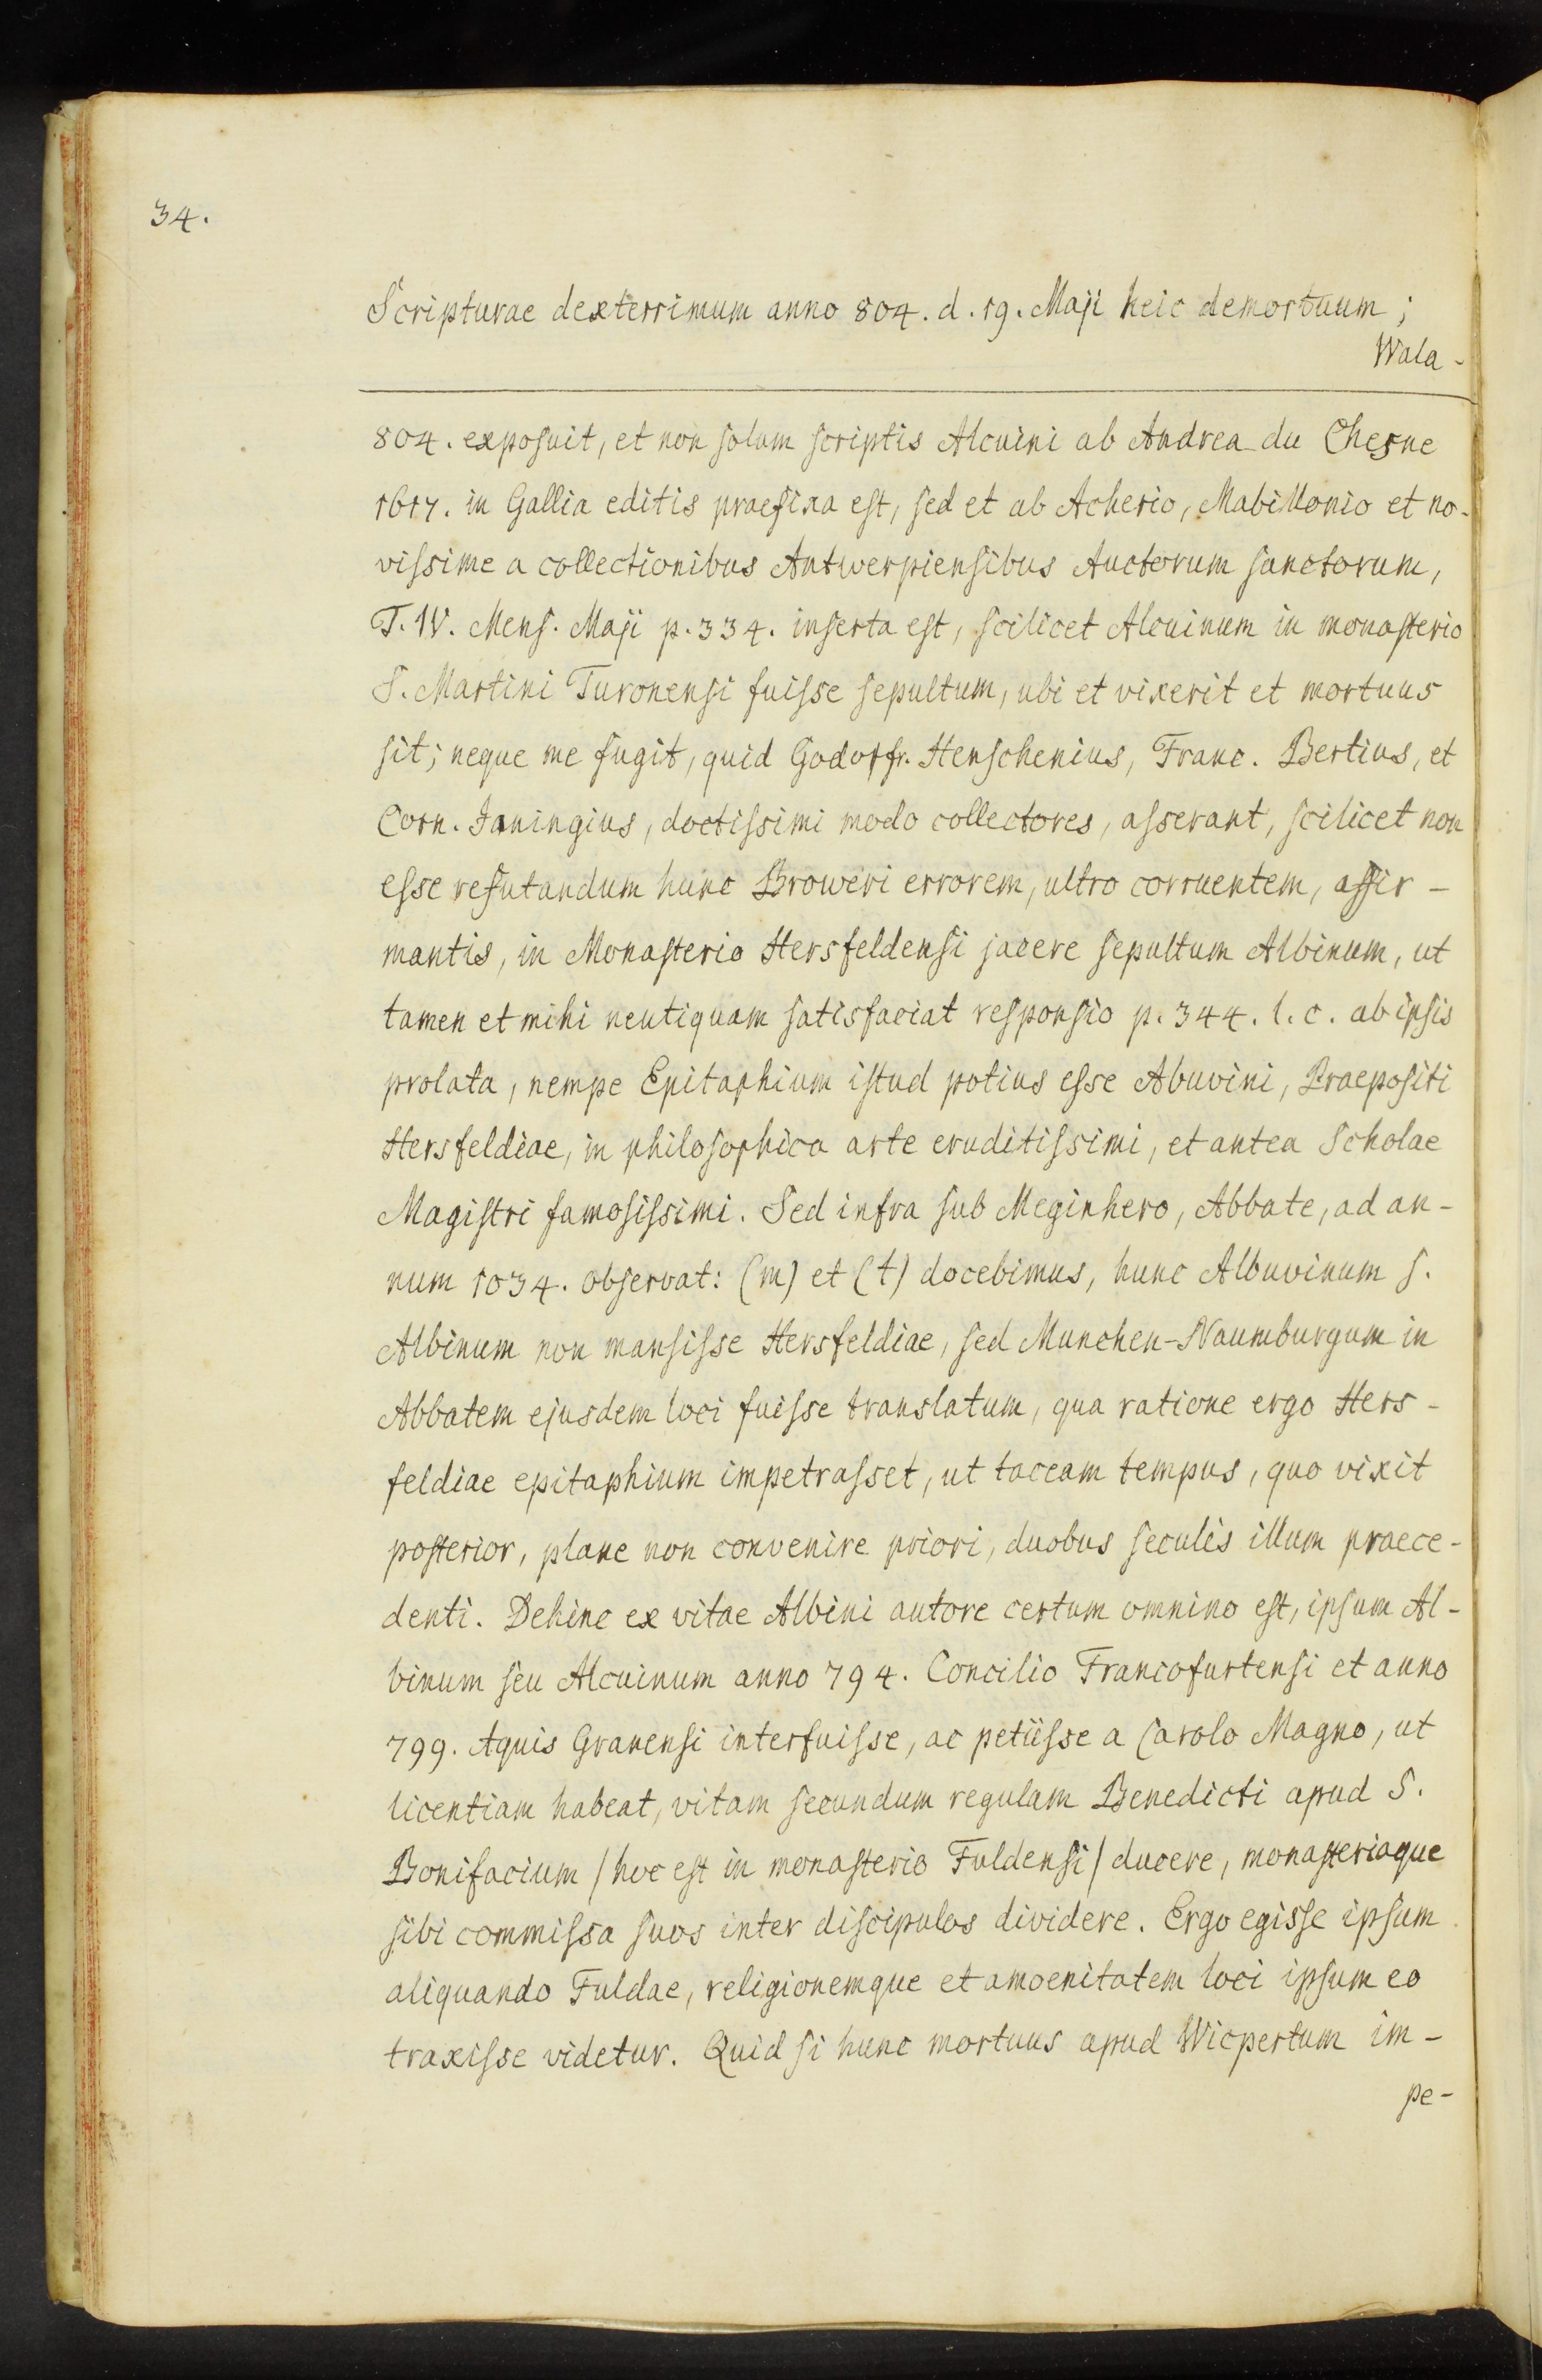 34.
Scripturae dexterrimum anno 804. d. 19. Maji heic demortuum;
Wala-
804. exposuit, et non solum scriptis Alcuini ab Andrea du Chesne
1617. in Gallia editis praefixa est, sed et ab Acherio, Mabillonio et no-
vissime a collectionibus Antwerpiensibus Auctorum sanctorum,
T. IV. Mens. Maji p. 334. inserta est, scilicet Alcuinum in monasterio
S. Martini Turonensi fuisse sepultum, ubi et vixerit et mortuus
sit; neque me fugit, quid Godofr. Henschenius, Franc. Bertius, et
Corn. Janingius, doctissimi modo collectores, asserant, scilicet non
esse refutandum hunc Broweri errorem, ultro corruentem, affir-
mantis, in Monasterio Hersfeldensi jacere sepultum Albinum, ut
tamen et mihi neutiquam satisfaciat responsio p. 344. l. c. ab ipsis
prolata, nempe Epitaphium istud potius esse Abuvini, Praepositi
Hersfeldiae, in philosophica arte eruditissimi, et antea Scholae
Magistri famosissimi. Sed infra sub Meginhero, Abbate, ad an-
num 1034. observat: (m) et (t) docebimus, hunc Albuvinum s.
Albinum non mansisse Hersfeldiae, sed Munchen-Naumburgum in
Abbatem ejusdem loci fuisse translatum, qua ratione ergo Hers-
feldiae epitaphium impetrasset, ut taceam tempus, quo vixit
posterior, plane non convenire priori, duobus seculis illum praece-
denti. Dehinc ex vitae Albini autore certum omnino est, ipsum Al-
binum seu Alcuinum anno 794. Concilio Francofurtensi et anno
799. Aquis Granensi interfuisse, ac petiisse a Carolo Magno, ut
licentiam habeat, vitam secundum regulam Benedicti apud S.
Bonifacium /hoc est in monasterio Fuldensi/ ducere, monasteriaque
sibi commissa suos inter discipulos dividere. Ergo egisse ipsum
aliquando Fuldae, religionemque et amoenitatem loci ipsum eo
traxisse videtur. Quid si hunc mortuus apud Wicpertum im-
pe-